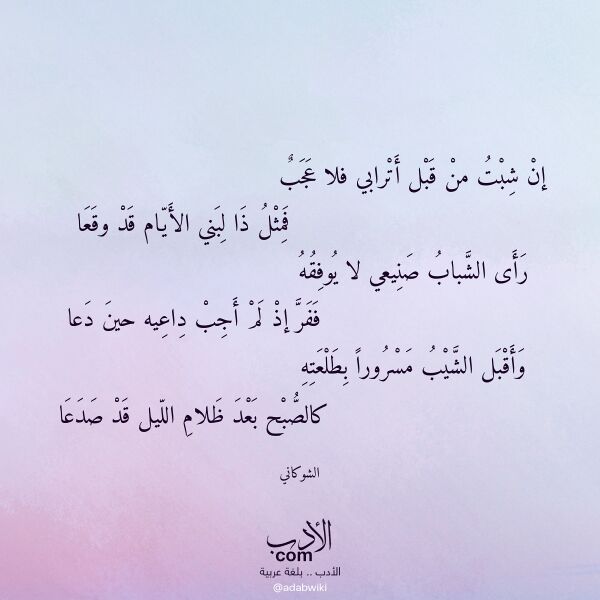 إنْ شِبْتُ منْ قَبْل أَتْرابي فلا عَجَبٌ
فَمِثْلُ ذَا لِبَني الأَيّام قَدْ وقَعَا
رَأَى الشَّبابُ صَنِيعي لا يُوفِقُهُ
فَفَرَّ إذْ لَمْ أَجِبْ دِاعِيه حينَ دَعا
وَأَقْبَل الشَّيْبُ مَسْرُوراً بِطَلْعَتِهِ
كالصُّبْح بَعْدَ ظَلامِ اللّيل قَدْ صَدَعَا
الشوكاني
الأدب
com
الأدب .. بلغة عربية
@adabwiki